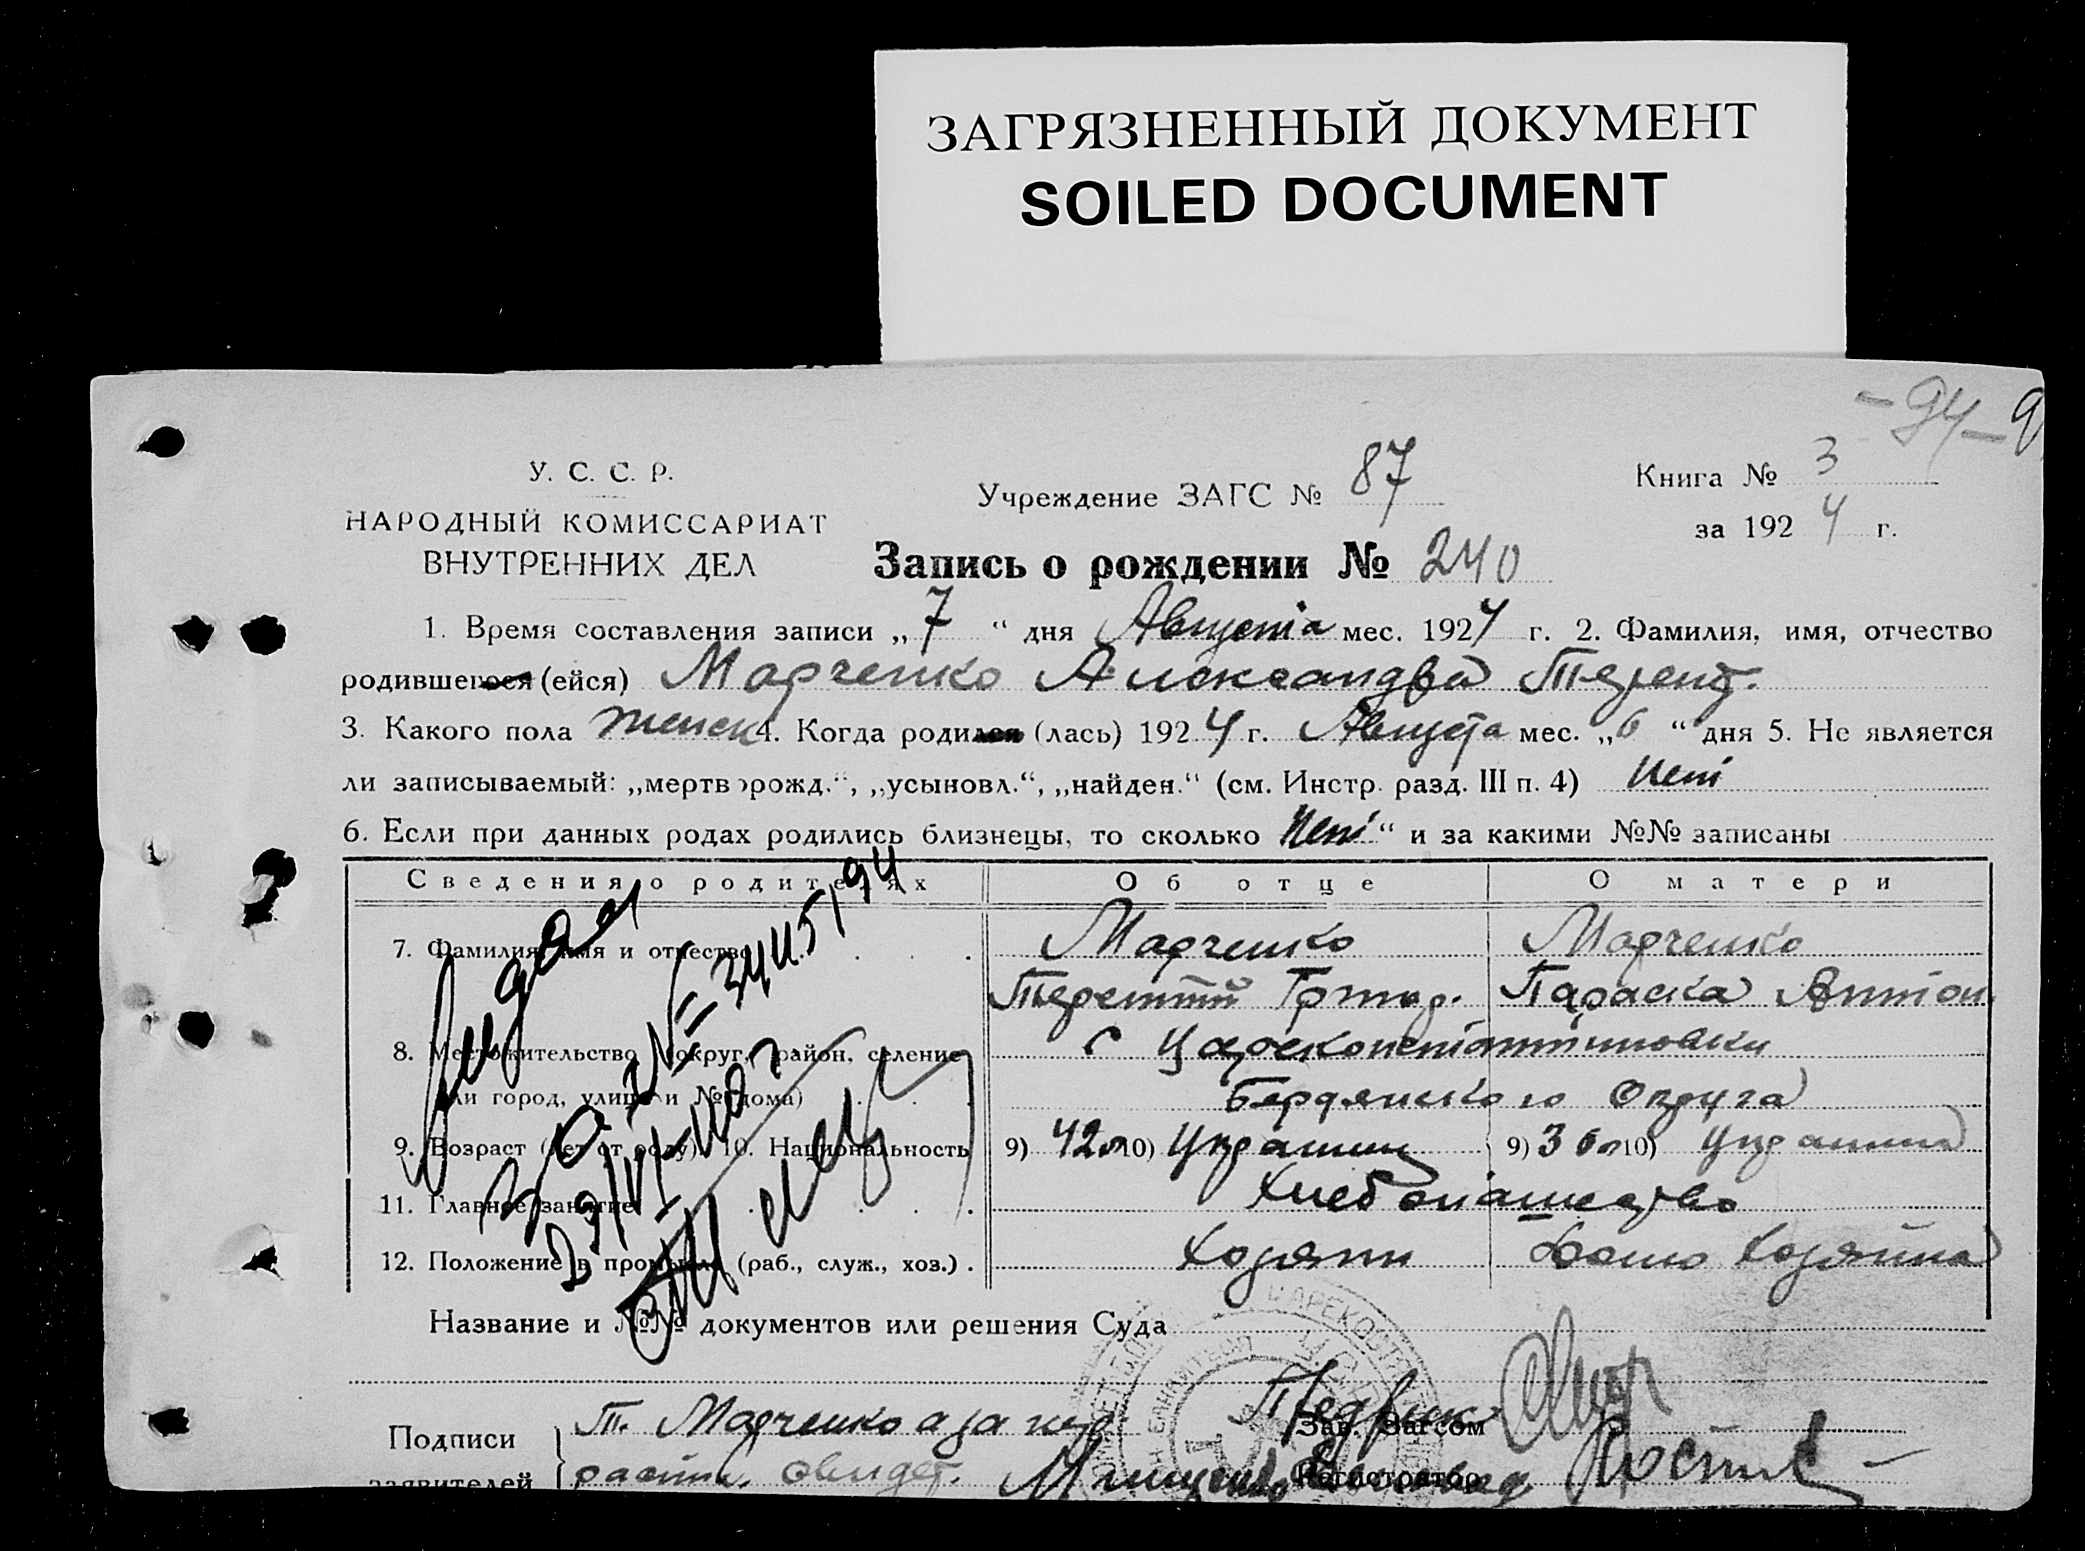 ЗАГРЯЗНЕННЫЙ ДОКУМЕНТ
SOILED DOCUMENT
— 94 — 9
У. С. С. Р.
НАРОДНЫЙ КОМИССАРИАТ
ВНУТРЕННИХ ДЕЛ
Учреждение ЗАГС № 87
Книга № 3
за 192 4 г.
Запись о рождении № 240
1. Время составления записи „ 7 “ дня Августа мес. 192 4 г. 2. Фамилия, имя, отчество
родившегося (ейся) Марченко Александра Терент.
3. Какого пола женск 4. Когда родился (лась) 192 4 г. Августа мес. „ 6 “ дня 5. Не является
ли записываемый: „мертворожд.“, „усыновл.“, „найден.“ (см. Инстр. разд. III п. 4) Нет
6. Если при данных родах родились близнецы, то сколько Нет “ и за какими №№ записаны
Сведения о родителях Об отце О матери
7. Фамилия, имя и отчество Марченко Марченко
Терентий Григор. Параска Антон.
8. Местожительство (округ, район, селение с Цареконстантиновки
или город, улица и № дома) Бердянского Округа
9. Возраст (лет от роду) 10. Национальность 9) 42 л 10) Украинец 9) 36 л 10) Украинка
11. Главное занятие Хлебопашество
12. Положение в промысле (раб., служ., хоз.) Хозяин Дома Хозяйка
Название и №№ документов или решения Суда
Подписи
заявителей
Т. Марченко а за негр
распис. свидет.
Зав. Загсом
Регистратор
№ 3445/94